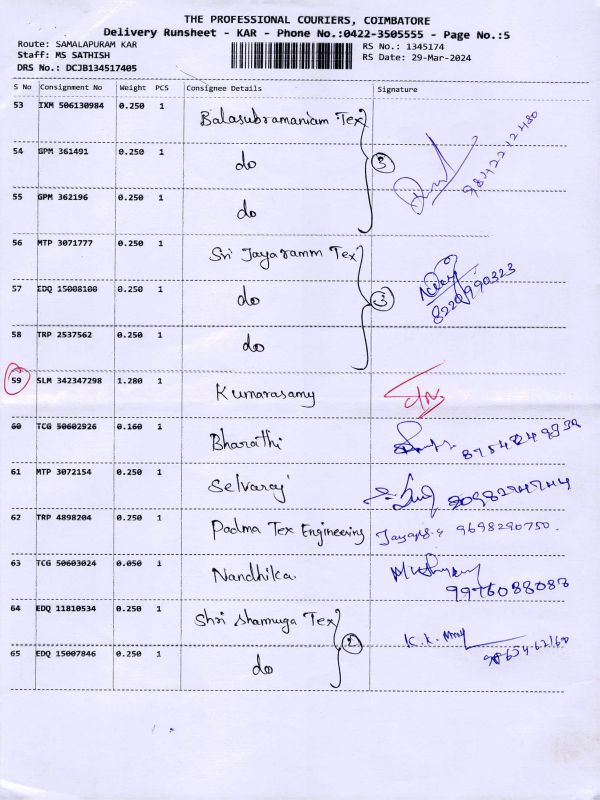 THE PROFESSIONAL COURIERS, COIMBATORE
Delivery Runsheet - KAR - Phone No.:0422-3505555 - Page No.:5
Route: SAMALAPURAM KAR
Staff: MS SATHISH
DRS No.: DCJB134517405
RS No.: 1345174
RS Date: 29-Mar-2024
S No Consignment No Weight PCS Consignee Details Signature
53 IXM 506130984 0.250 1 Balasubramaniam Tex
54 GPM 361491 0.250 1 do 3
55 GPM 362196 0.250 1 do
56 MTP 3071777 0.250 1 Sri Jayaramm Tex
57 EDQ 15008100 0.250 1 do 3 8220990323
58 TRP 2537562 0.250 1 do
59 SLM 342347298 1.280 1 Kumarasamy
60 TCG 50602926 0.160 1 Bharathi
61 MTP 3072154 0.250 1 Selvaraj
62 TRP 4898204 0.250 1 Padma Tex Engineering 9698290750.
63 TCG 50603024 0.050 1 Nandhika 9976088088
64 EDQ 11810534 0.250 1 Shri Shamuga Tex 2
65 EDQ 15007846 0.250 1 do